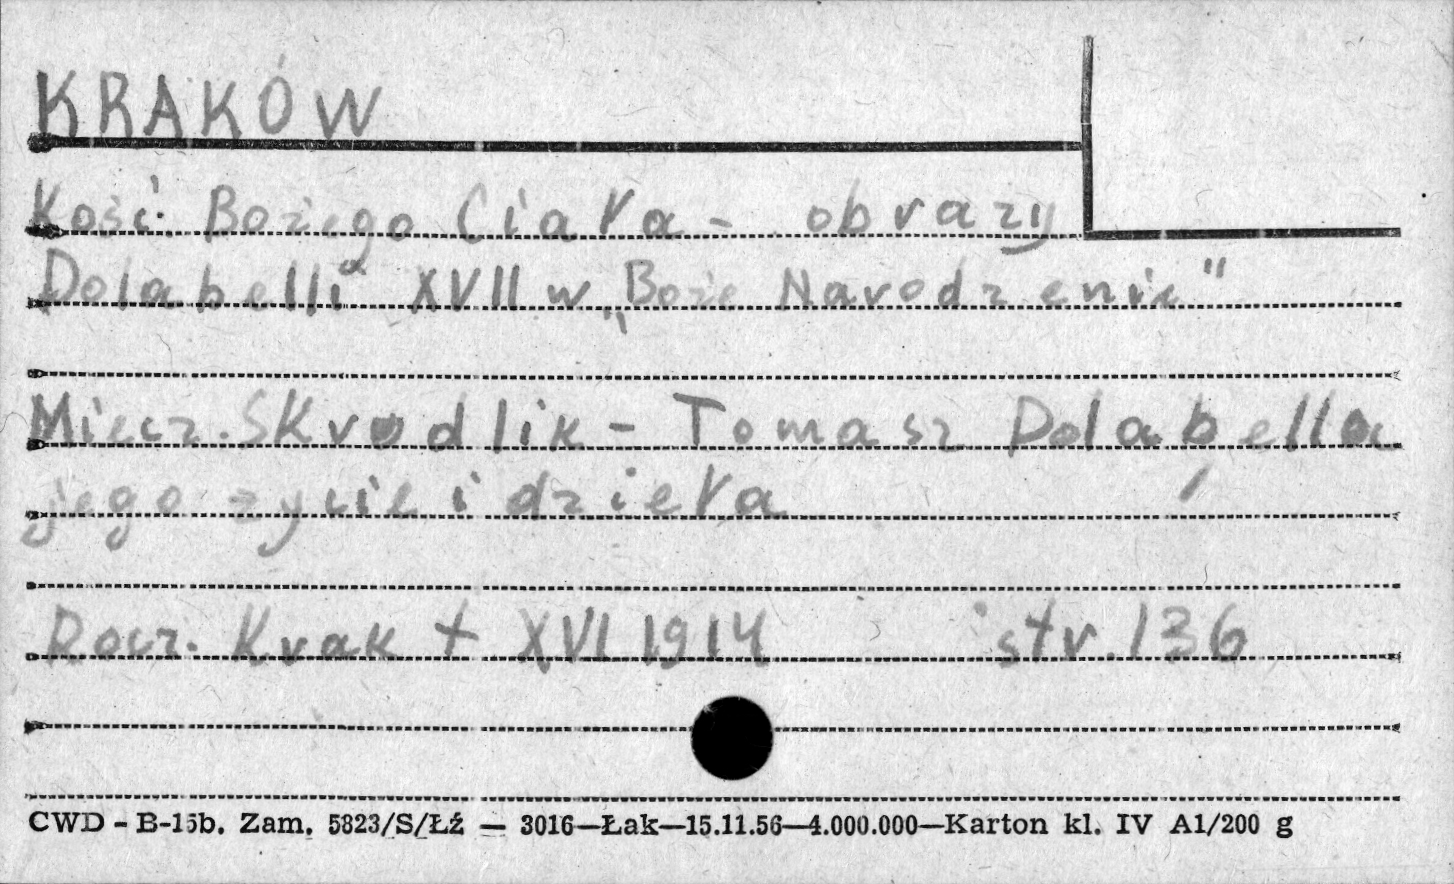 KRAKÓW
Kość. Bożego Ciała - obrazy
Dolabelli XVII w „Boże Narodzenie"
Miecz. Skrudlik - Tomasz Dolabella
jego życie i dzieła
Rocz. Krak t XVI 1914 str. 136
CWD - B-15b. Zam. 5823/S/Łź — 3016—Łak—15.11.56—4.000.000—Karton kl. IV A1/200 g